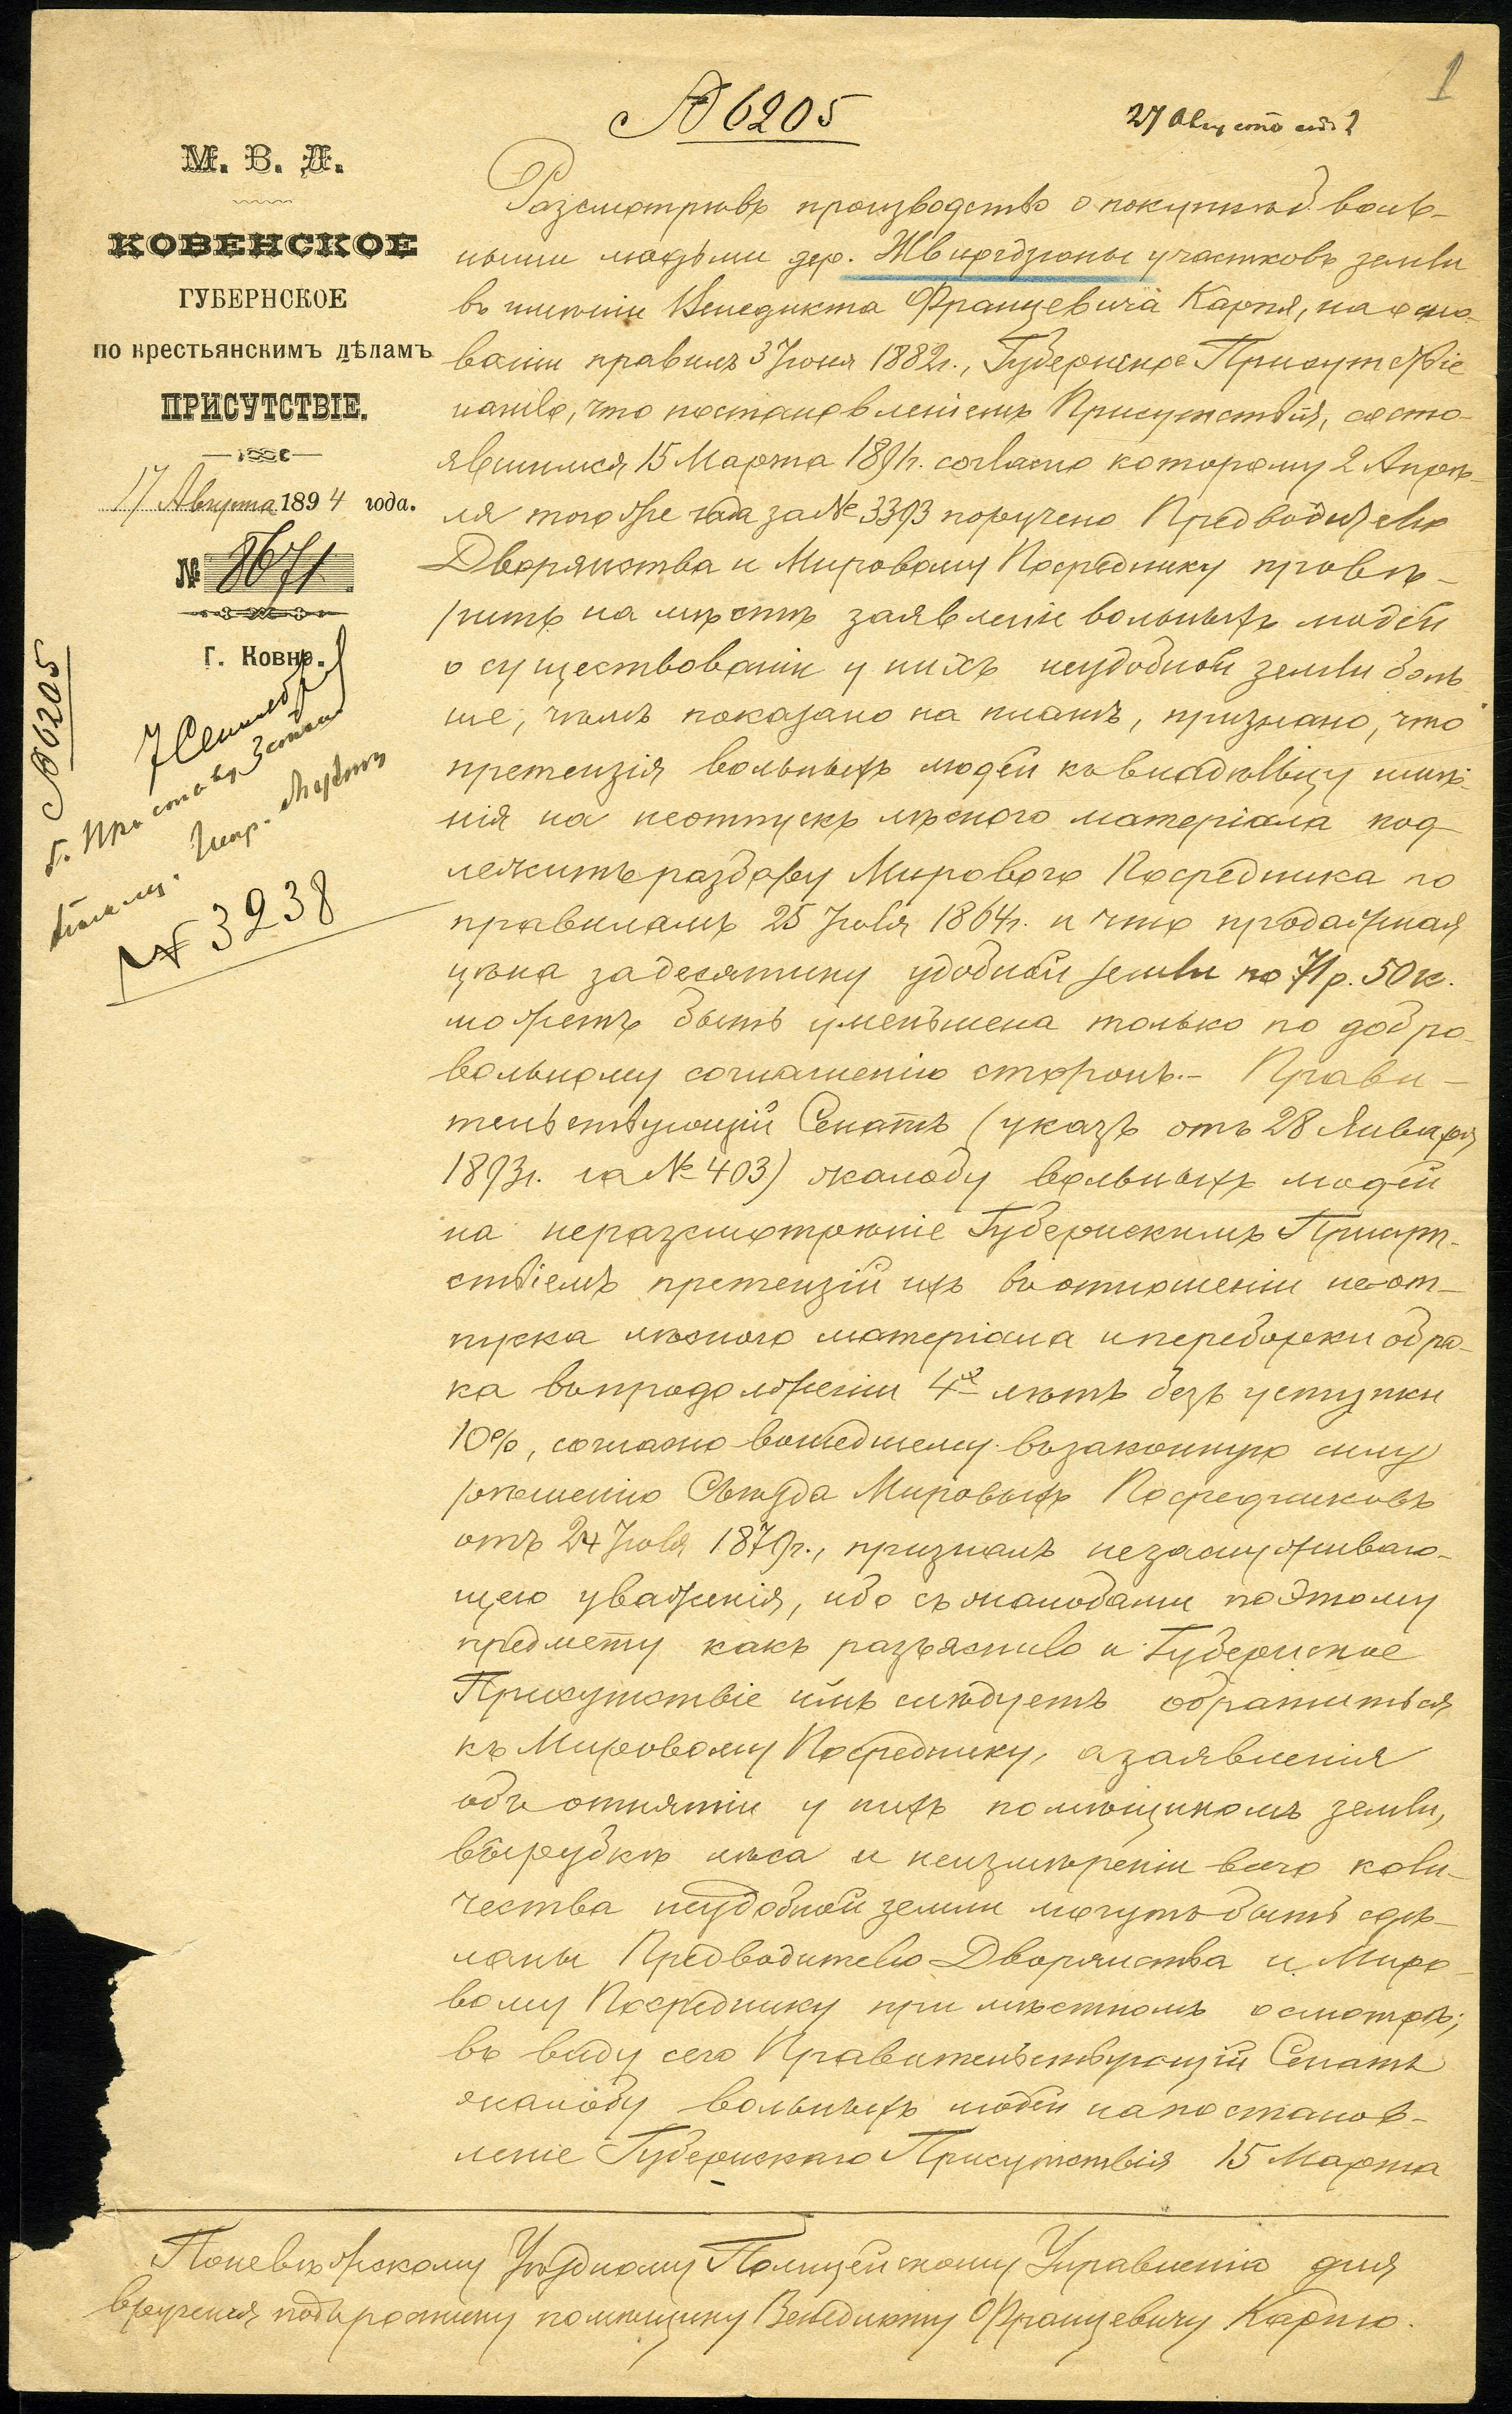 1
№ 6205
27 Августа
М. В. Д.
КОВЕНСКОЕ
ГУБЕРНСКОЕ
ПО КРЕСТЬЯНСКИМЪ ДѢЛАМЪ
ПРИСУТСТВІЕ.
17 Августа 1894 года.
№ 8671
Г. Ковно.
№ 6205
7 Сентября
г. Приставу 3 стана
№ 3238
Разсмотривъ производство о покупкѣ воль-
ными людьми дер. Жвиргждзюны участковъ земли
въ имѣніи Венедикта Францевича Карпя, на осно-
ваніи правилъ 3 Іюня 1882 г., Губернское Присутствіе
нашло, что постановленіемъ Присутствія, состо-
явшимся 15 Марта 1891 г. согласно которому 2 Апрѣ-
ля того же года за № 3393 поручено Предводителю
Дворянства и Мировому Посреднику провѣ-
рить на мѣстѣ заявленіе вольныхъ людей
о существованіи у нихъ неудобной земли боль
ше, чѣмъ показано на планѣ, признано, что
претензія вольныхъ людей къ владѣльцу имѣ-
нія на неотпускъ лѣсного матеріала под-
лежитъ разбору Мирового Посредника по
правиламъ 25 Іюля 1864 г. и что продажная
цѣна за десятину удобной земли по 71 р. 50 к.
можетъ быть уменьшена только по добро-
вольному соглашенію сторонъ.- Прави-
тельствующій Сенатъ (указъ отъ 28 Января
1893 г. за № 403) жалобу вольныхъ людей
на неразсмотрѣніе Губернскимъ Присут-
ствіемъ претензій ихъ въ отношеніи неот-
пуска лѣсного матеріала и переборки обро-
ка въ продолженіи 4х лѣтъ безъ уступки
10%, согласно вошедшему въ законную силу
рѣшенію Съѣзда Мировыхъ Посредниковъ
отъ 24 Іюля 1879 г., призналъ незаслуживаю-
щею уваженія, ибо съ жалобами по этому
предмету какъ разъяснило и Губернское
Присутствіе имъ слѣдуетъ обратиться
къ Мировому Посреднику, а заявленія
объ отнятіи у нихъ помѣщикомъ земли,
вырубкѣ лѣса и неизмѣреніи всего коли-
чества неудобной земли могутъ быть сдѣ-
ланы Предводителю Дворянства и Миро-
вому Посреднику при мѣстномъ осмотрѣ;
въ виду сего Правительствующій Сенатъ
жалобу вольныхъ людей на постанов-
леніе Губернскаго Присутствія 15 Марта
Поневѣжскому Уѣздному Полицейскому Управленію для
врученія подъ росписку помѣщику Венедикту Францевичу Карпю.